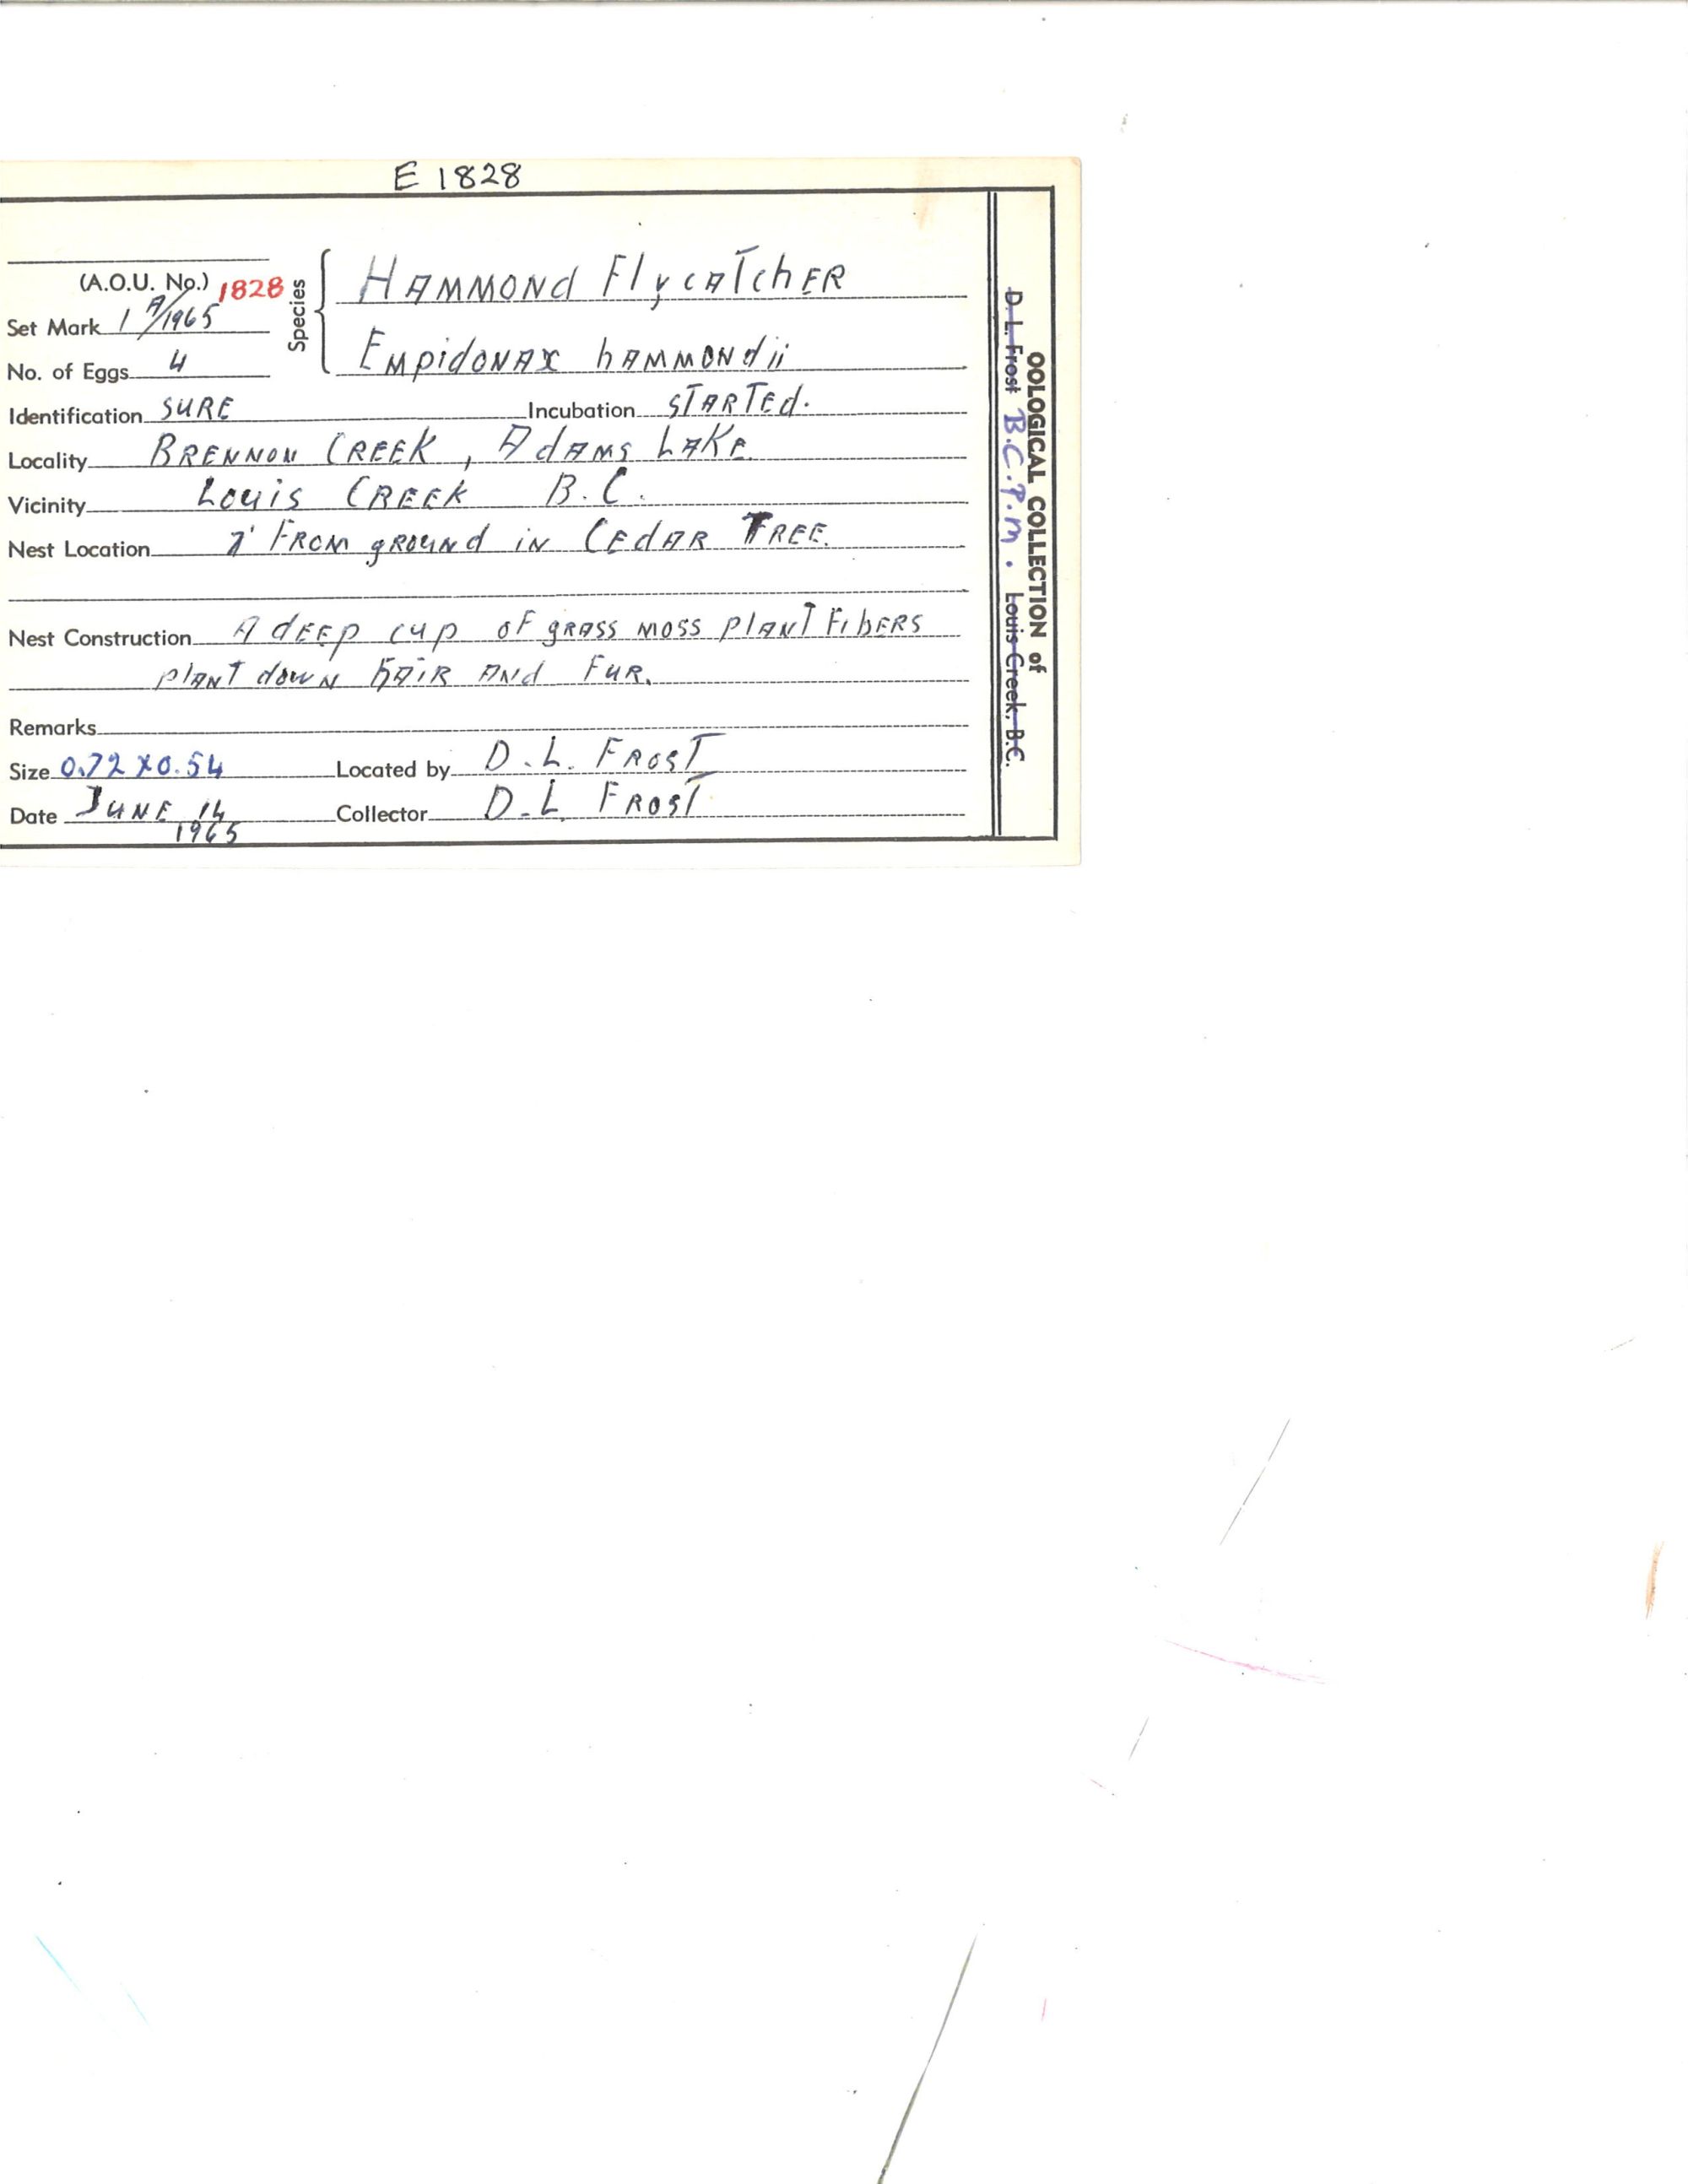 E 1828
(A.O.U. No.) 1828
Set Mark 1 A/1965
No. of Eggs 4
Species
HAMMOND FlycATchER
EMpidoNAx hAMMONdii
Identification SURE Incubation STARTEd.
Locality BRENNON CREEK, AdAMS LAKE
Vicinity Louis CREEK B.C.
Nest Location 7' FROM gROuNd iN CEdAR TREE.
Nest Construction A dEEp cup oF gRASS MOSS plANT FibERS
plANT dowN hAiR ANd FuR.
Remarks
Size 0.72 x 0.54 Located by D.L. FROST
Date JUNE 14 1965 Collector D.L. FROST
OOLOGICAL COLLECTION of
D. L. Frost B.C.P.M. Louis Creek, B.C.